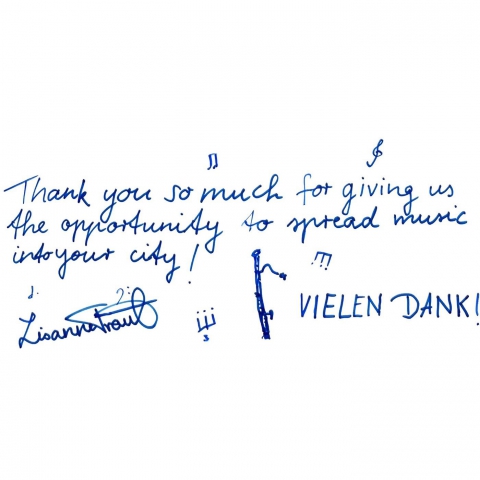 Thank you so much for giving us
the opportunity to spread music
into your city!
VIELEN DANK!
Lisanne Traut